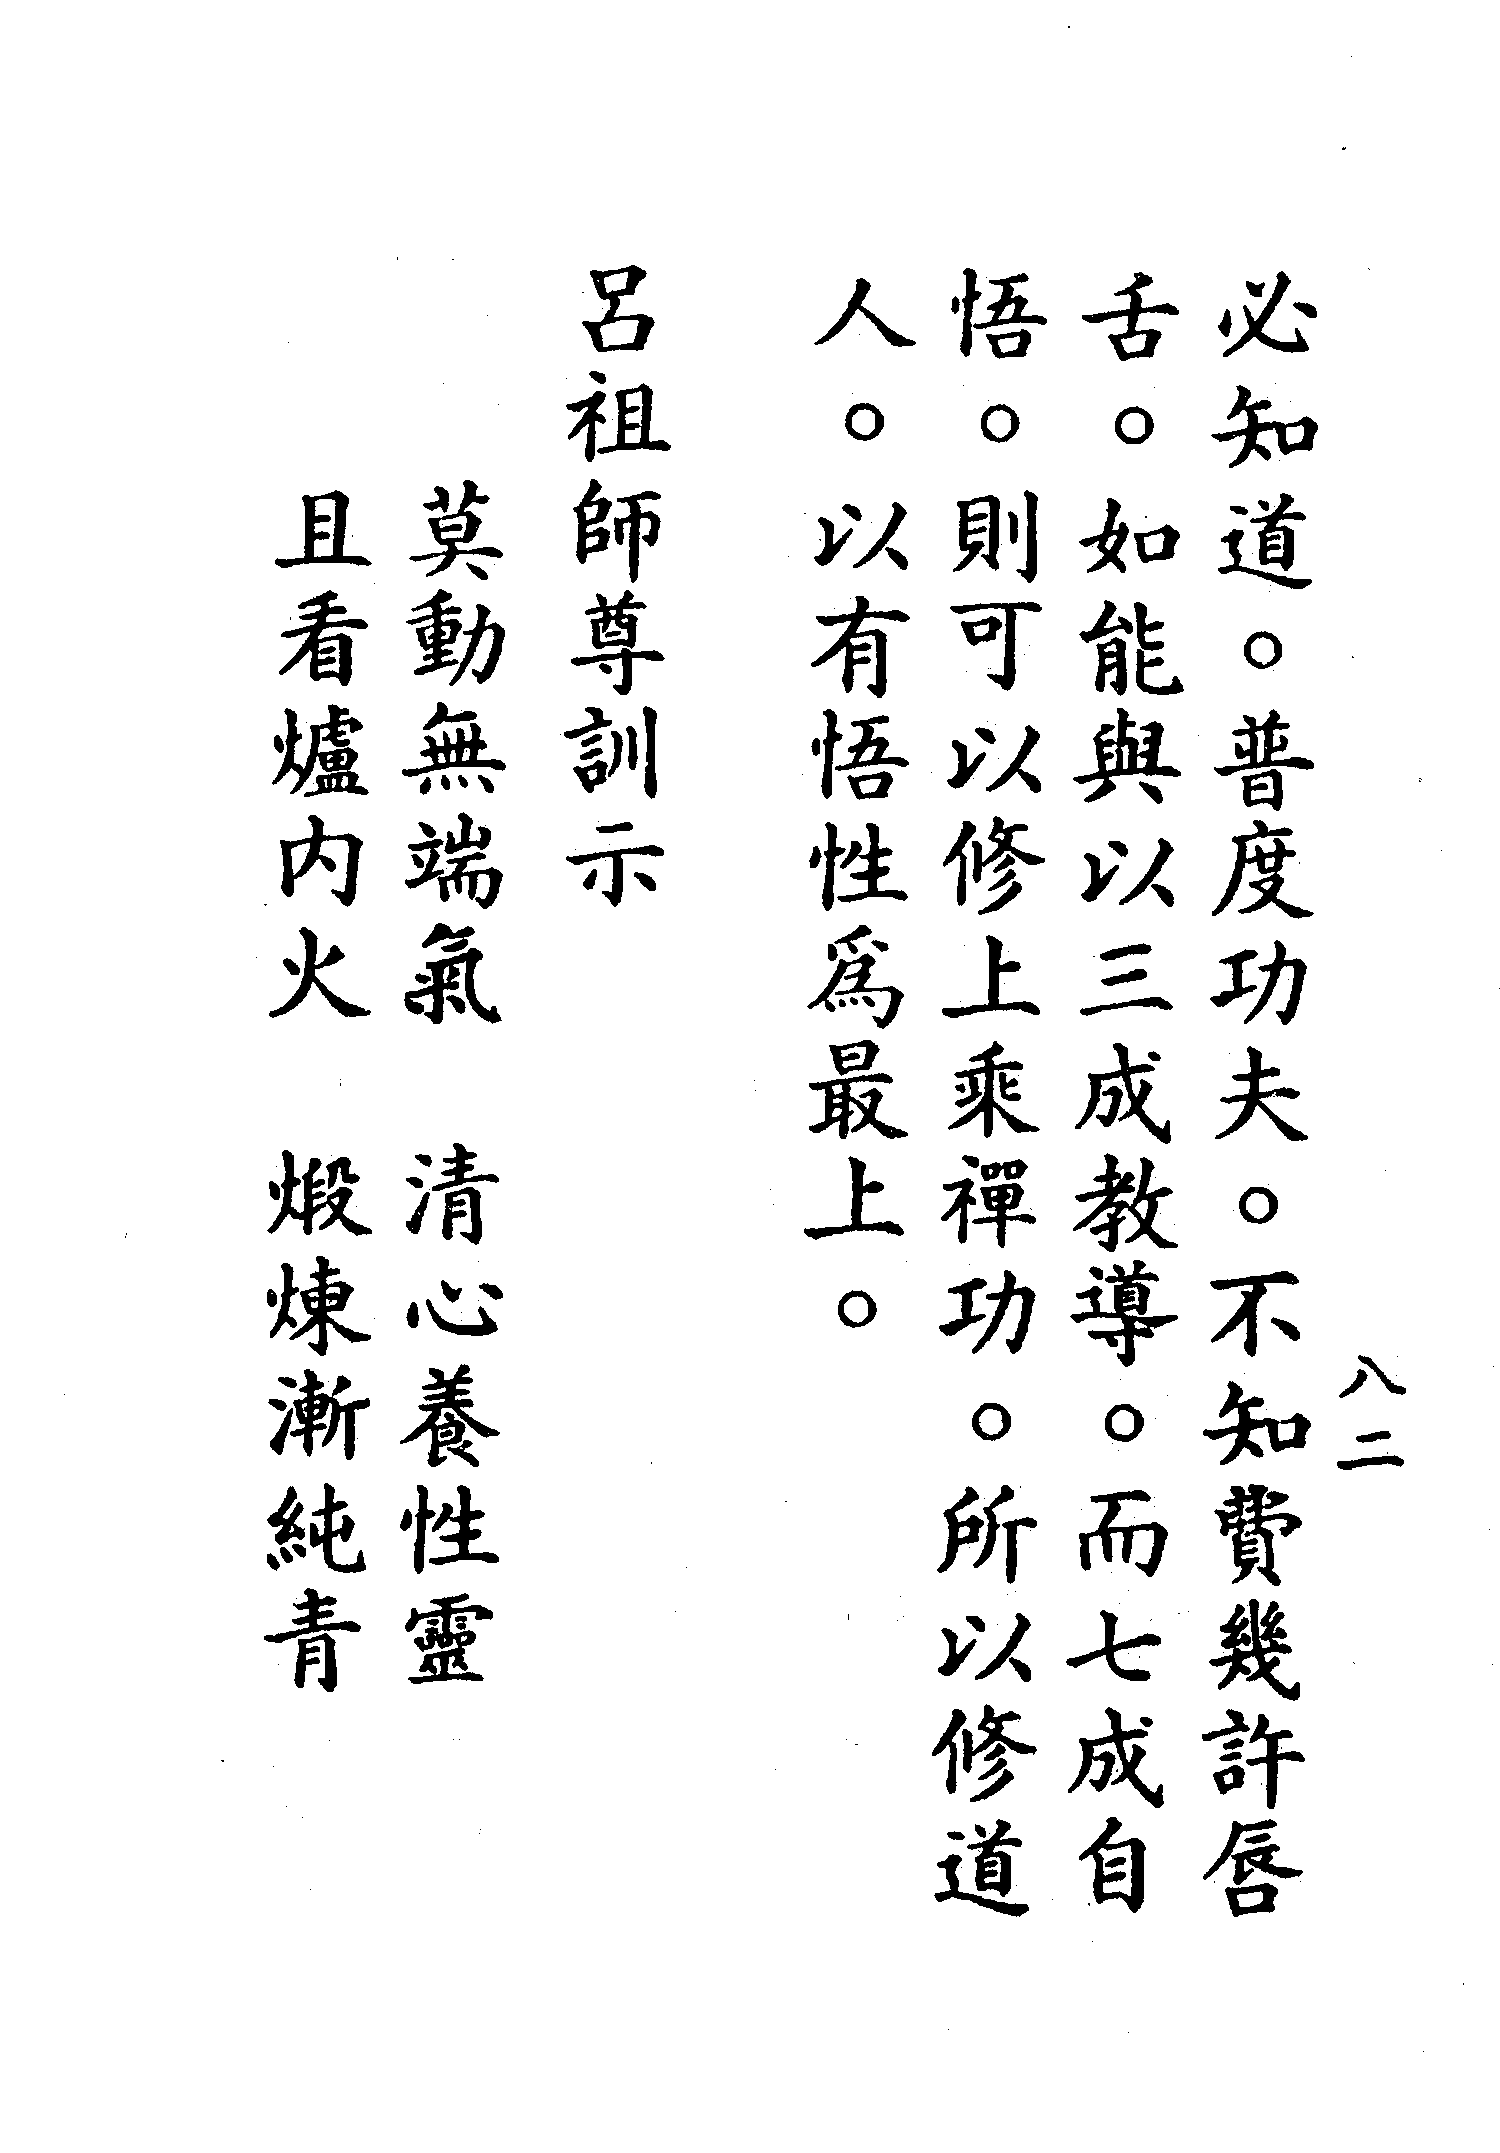 八二
必知道。普度功夫。不知費幾許唇
舌。如能與以三成教導。而七成自
悟。則可以修上乘禪功。所以修道
人。以有悟性爲最上。
呂祖師尊訓示
莫動無端氣　清心養性靈
且看爐內火　煅煉漸純青